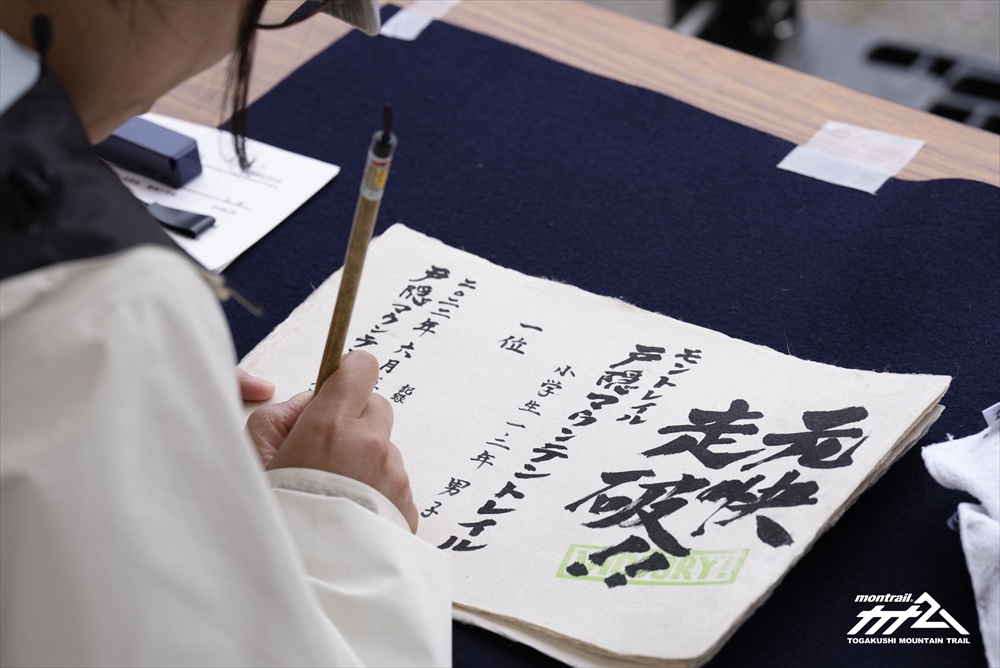 元快
走破!!
VICTORY!!
モントレイル
戸隠マウンテントレイル
小学生一・二年 男子
一位
記録
二〇二二年六月
戸隠マウンテ
montrail
TOGAKUSHI MOUNTAIN TRAIL